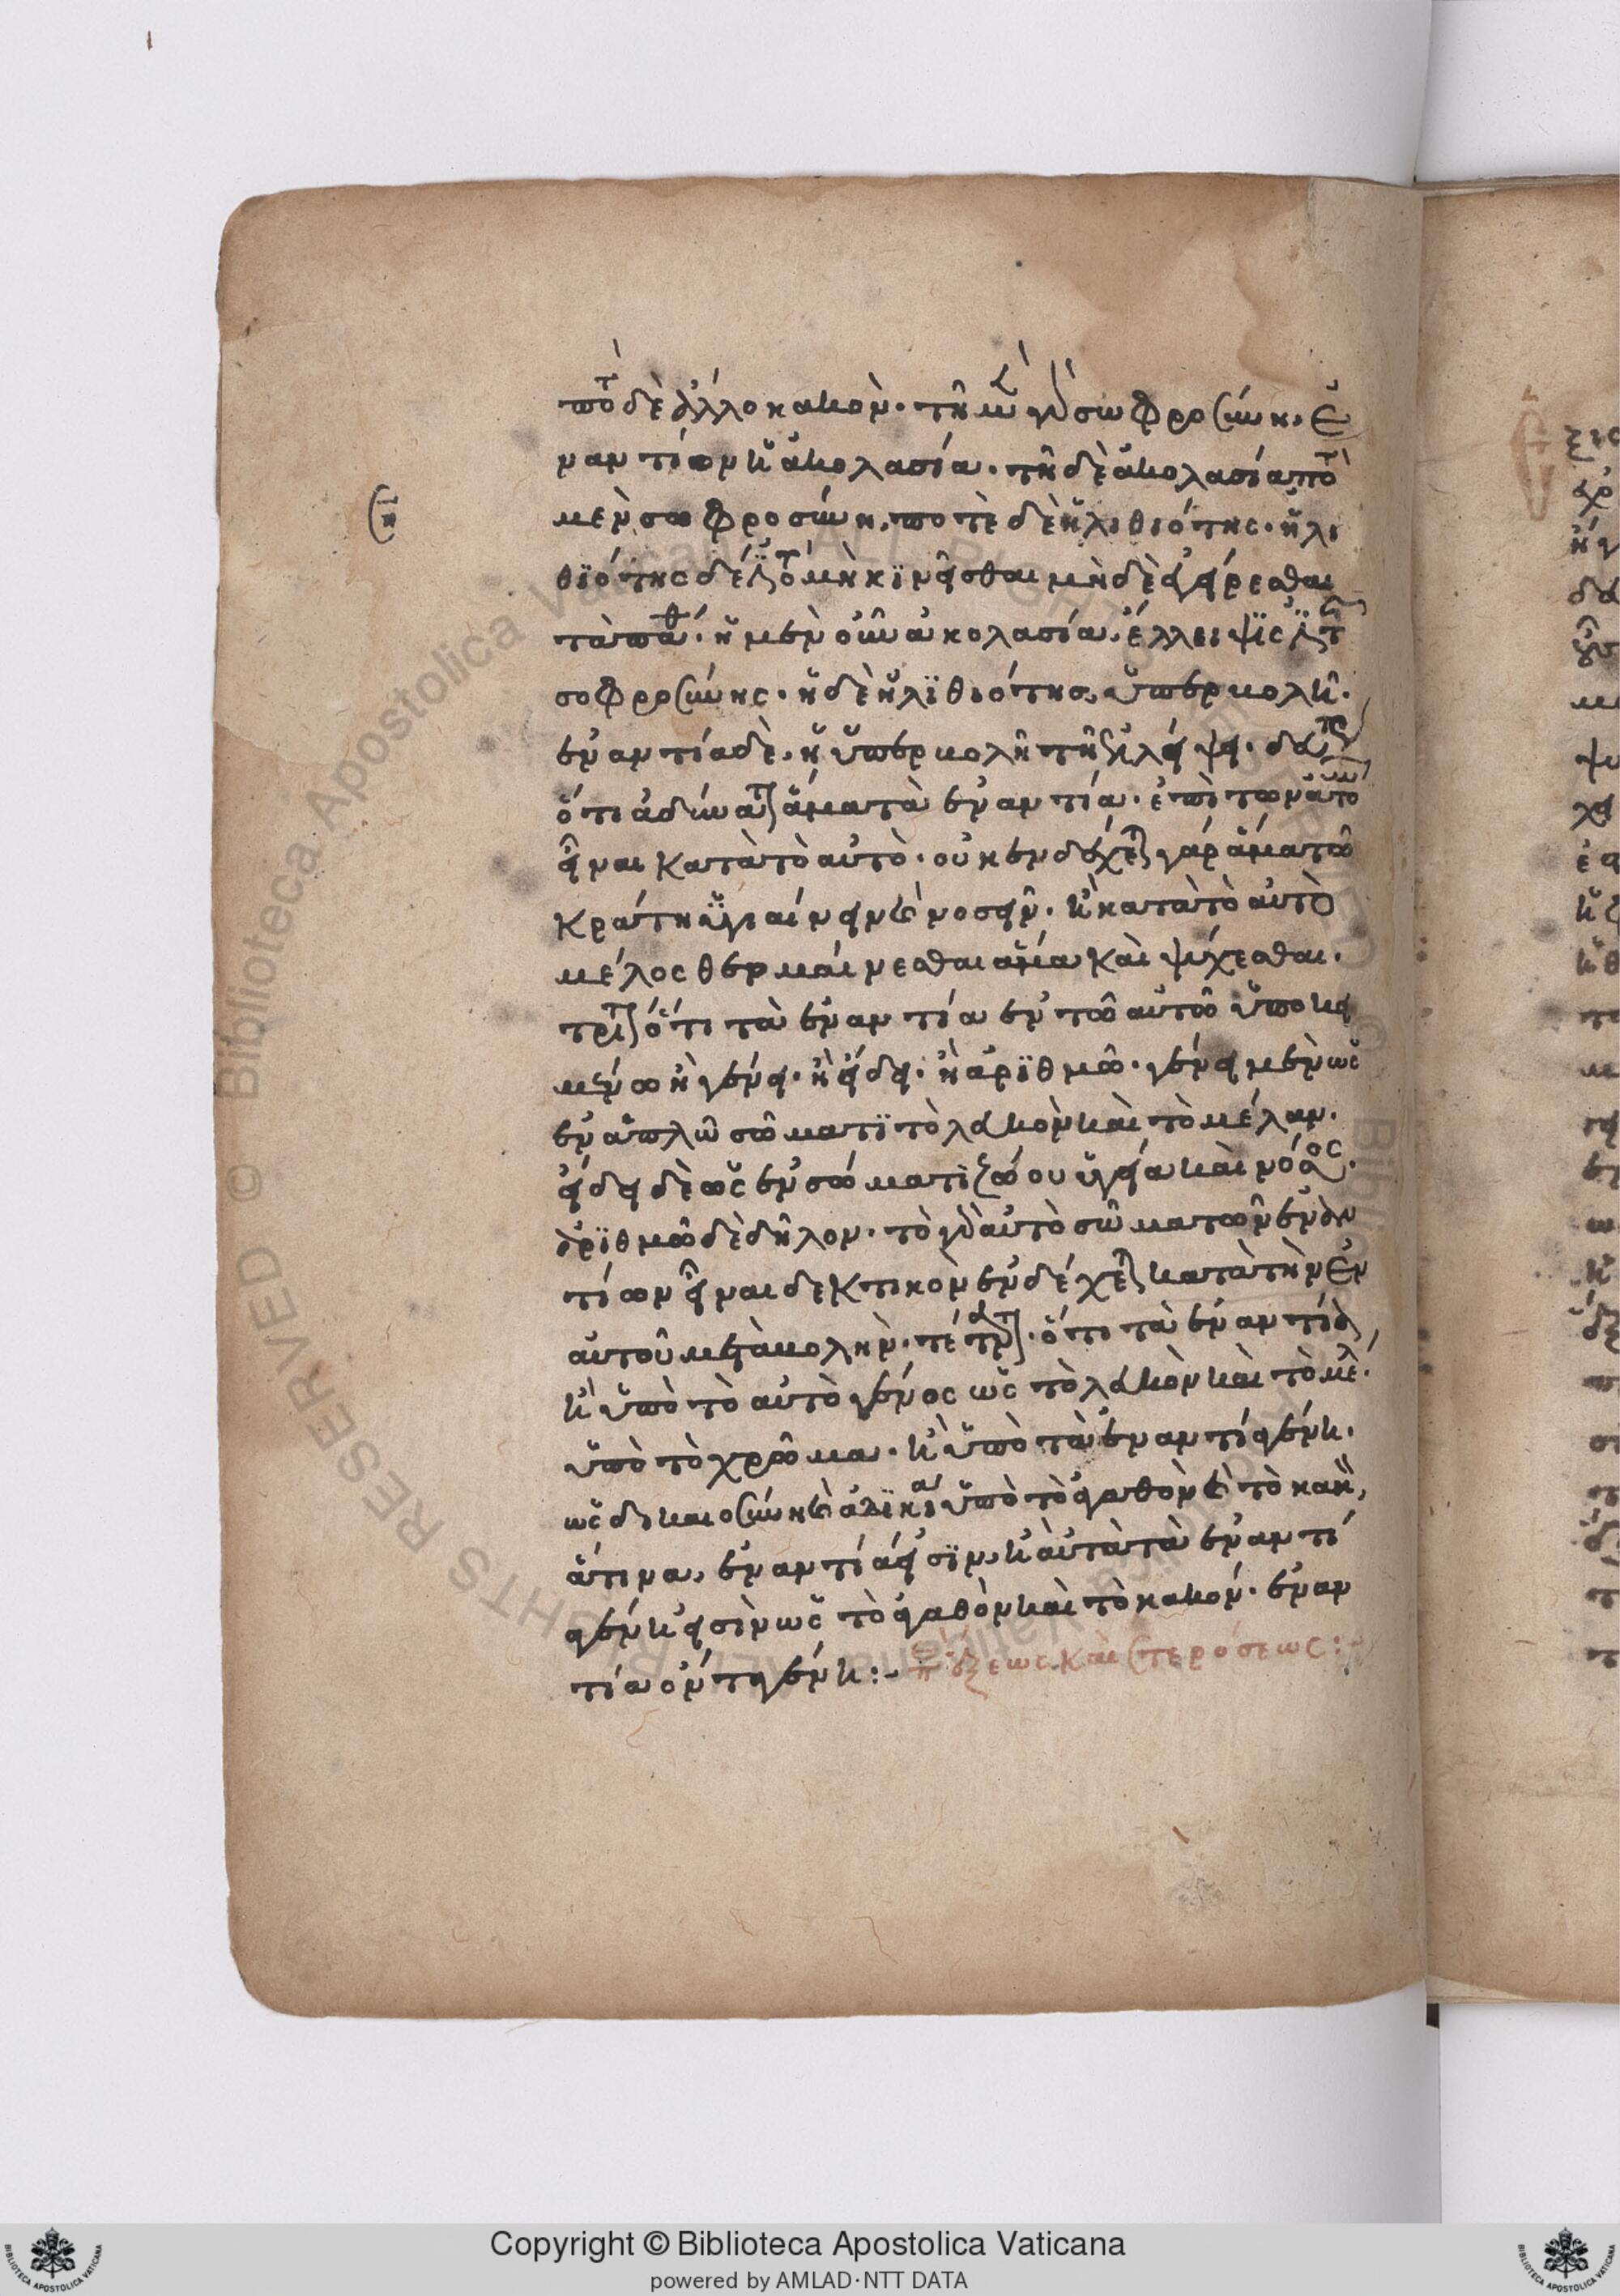 ποτὲ δὲ ἄλλο κακὸν· τῆ μὲν γὰρ σωφροσύνη, ἐ
ναντίον ἡ ἀκολασία· τῆ δὲ ἀκολασία ποτὲ
μὲν σωφροσύνη, ποτὲ δὲ ἠλιθιότης· ἠλι
θϊότης δέ ἐστι τὸ μὴ κϊνεῖσθαι μὴ δὲ ἐγείρεσθαι
τὰ πάθη· ἡ μὲν οὖν ἀκολασία, ἔλλειψϊς ἐστι τῆς
σοφροσύνης· ἡ δὲ ἠλϊθιότης, ὑπερβολή·
ἐναντία δὲ, ἡ ὑπερβολὴ τῆ ἐλλείψει· δεύτερον
ὅτι ἀδύνατον ἅμα τὰ ἐναντία· ἐπὶ τῶν αὐτῶν
εἶναι κατὰ τὸ αὐτὸ· οὐκ ἐνδέχεται γάρ ἅμα τῶ
κράτη ὑγιαίνειν καὶ νοσεῖν· ἢ κατὰ τὸ αὐτὸ
μέλος θερμαίνεσθαι ἅμα καὶ ψύχεσθαι·
τρίτον ὅτι τὰ ἐναντία ἐν τῶ αὐτῶ ὑποκει
μένω ἢ γένει· ἢ εἴδει· ἢ ἀρϊθμῶ· γένει μὲν ὡς
ἐν ἁπλῶ σώματϊ τὸ λευκὸν καὶ τὸ μέλαν·
εἴδει δὲ ὡς ἐν σώματϊ ζώου ὑγεία καὶ νόσος·
ἀρϊθμῶ δὲ δῆλον· τὸ γὰρ αὐτὸ σῶμα τῶν ἐναν
τίων εἶναι δεκτικὸν ἐνδέχεται κατὰ τὴν ἐν
αὐτοῦ μεταβολὴν· τέταρτον· ὅτι τὰ ἐναντία
ἢ ὑπὸ τὸ αὐτὸ γένος ὡς τὸ λευκὸν καὶ τὸ μέλαν·
ὑπὸ τὸ χρῶμα· ἢ ὑπὸ τὰ ἐναντία γένη·
ὡς δικαιοσύνη καὶ ἀδϊκία ὑπὸ τὸ ἀγαθὸν καὶ τὸ κακὸν,
ἅτινα, ἐναντία εἰσϊν, ἢ αὐτὰ τὰ ἐναντία
γένη εἰσὶν ὡς τὸ ἀγαθὸν καὶ τὸ κακόν· ἐναν
τία ὄντα γένη:- περὶ ἕξεως καὶ στερήσεως:-